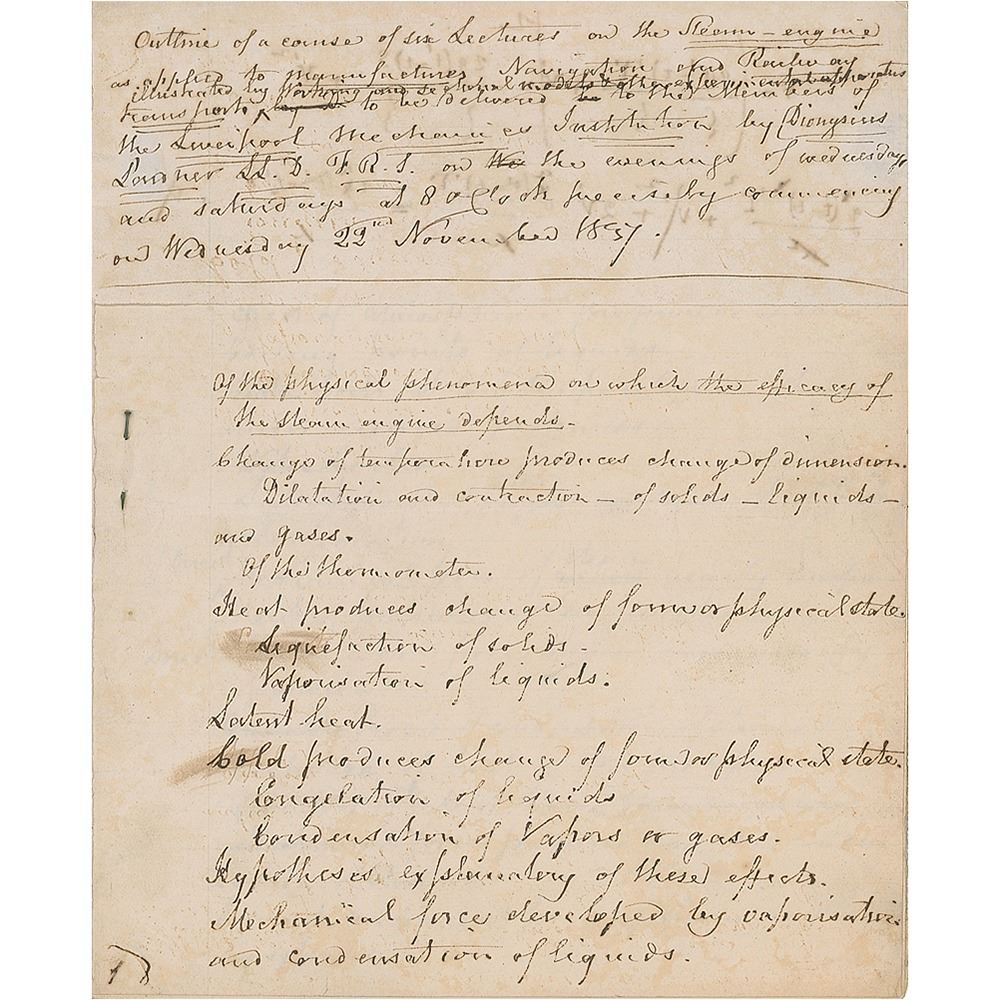 Outline of a course of six Lectures on the Steam-engine
as applied to manufactures Navigation and Railway
illustrated by Working and sectional models & other experimental apparatus
transport, to be delivered to the Members of
the Liverpool Mechanics Institution by Dionysius
Lardner LL.D. F.R.S. on the the evenings of wednesdays
and saturdays at 8 o Clock precisely commencing
on Wednesday 22nd November 1837.
Of the physical phenomena on which the efficacy of
the steam engine depends.
Change of temperature produces change of dimension.
Dilatation and contraction - of solids - liquids -
and gases.
Of the thermometer.
Heat produces change of form or physical state.
Liquefaction of solids.
Vaporisation of liquids.
Latent heat.
Cold produces change of form or physical state.
Congelation of liquids
Condensation of Vapors or gases.
Hypothesis explanatory of these effects.
Mechanical force developed by vaporisation
and condensation of liquids.